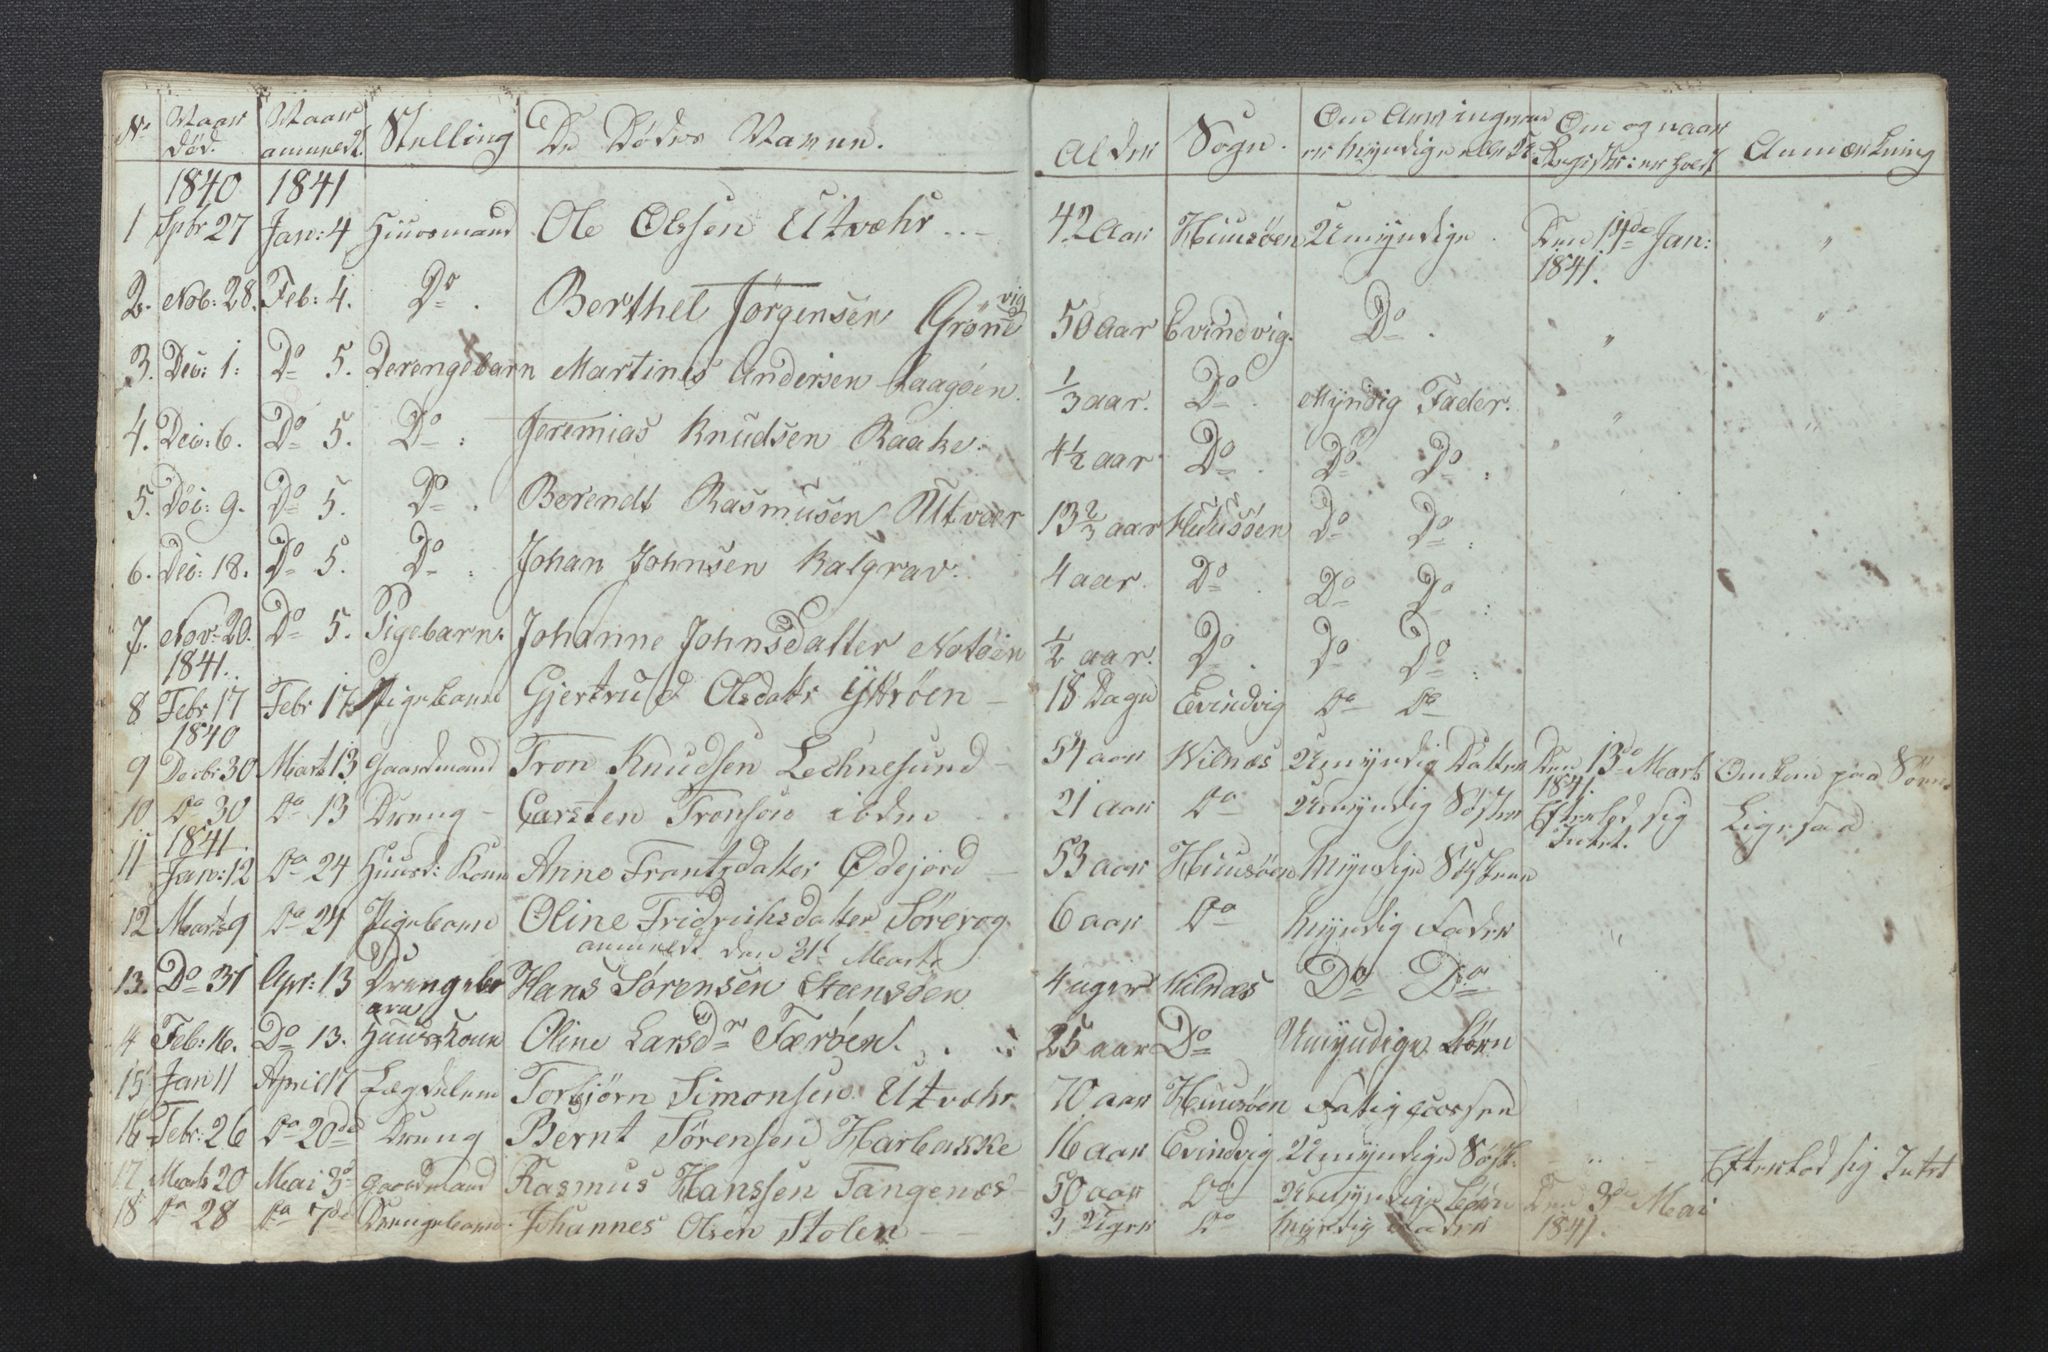 No Naar død. Naar anmeldt. Stilling De Dødes Navne. Alder Sogn. Om Arvingerne er Myndige eller U: Om og naar Registr: er holdt Anmærkning
1840 1841
1 Spbr 27 Jan: 4 Huusmand Ole Olssen Utvæhr 42 Aar Huusøen Umyndige Den 14de Jan: 1841. "
2. Nob: 28. Feb: 4. Do. Berthel Jørgensen Grønevig 50 aar Evindvig. Do. " "
3. Dec: 1: Do 5. Derengebarn Martines Andersen Laagøen. 1/3 aar. Do. Myndig Fader. "
4. Dec: 6. Do 5. Do: Jeremias Knudsen Raake. 4 1/2 aar Do. Do Do: " " "
5. Dec: 9. Do 5. Do. Berendt Rasmusen Utvær 13 2/3 aar Huusøen Do Do:
6. Dec: 18. Do 5. Do: Johan Johnsen Kalgrav. 4 aar. Do. Do Do:
7. Nov: 20. Do 5. Pigebarn. Johanne Johnsdatter Notøen 1/2 aar. Do. Do Do:
1841.
8 Febr 17 Febr 17 Pigebarn Gjertrud Olsdatr Yttrøen 18 Dage Evindvig Do Do
1840
9 Decbr 30 Marts 13 Gaardmand Tron Knudsen Lechnesund 54 aar Wilnæs Umyndig Datter Den 13de Marts 1841. Omkom paa Søen
10 Do 30 Do 13 Dreng Carsten Tronsen ibdm 21 aar Do Umyndig Søster Efterlod sig Intet. Ligesaa
1841.
11 Jan: 12 Do 24 Huusm: Kone Anne Frantzdatter Ødejord 53 aar Huusøen Myndige Søstre
12 Marts 9 Do 24 Pigebarn Oline Fridrichsdatter Sørevog 6 aar Do Myndig Fader
anmeldt den 31t Marts
13. Do 31 Apr: 13 Drengebarn Hans Sørensen Stensøen 4 uger Wilnæs Do Do.
14 Feb: 16. Do 13. Huuskone Oline Larsdr Færøen. 25 aar Do Umyndige Børn
15 Jan 11 April 17 Lægdslem Torbjørn Simonsen Utvæhr 70 aar Huusøen Fatigcassen
16 Febr: 26 Do 20de Dreng Bernt Sørensen Harbakke 16 aar Evindvig Umyndige Søsk: " Efterlod sig Intet
17 Marts 20 Mai 3d Gaardmand Rasmus Hanssen Tangenæs 50 aar Do Umyndige Børn Den 3de Mai 1841.
18 Do 28 Do 7de Drengebarn. Johannes Olsen Stolen 3 Uger Do Myndig Fader